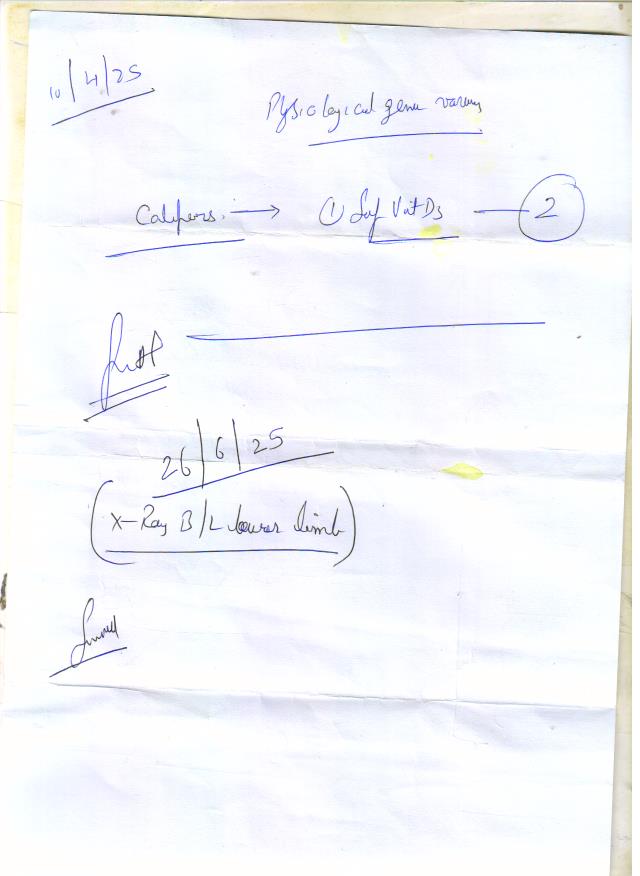 10/4/25
Physiological genu varum
Calipers. → ① Vit D3 — 2
26/6/25
(X-Ray B/L lower limb)